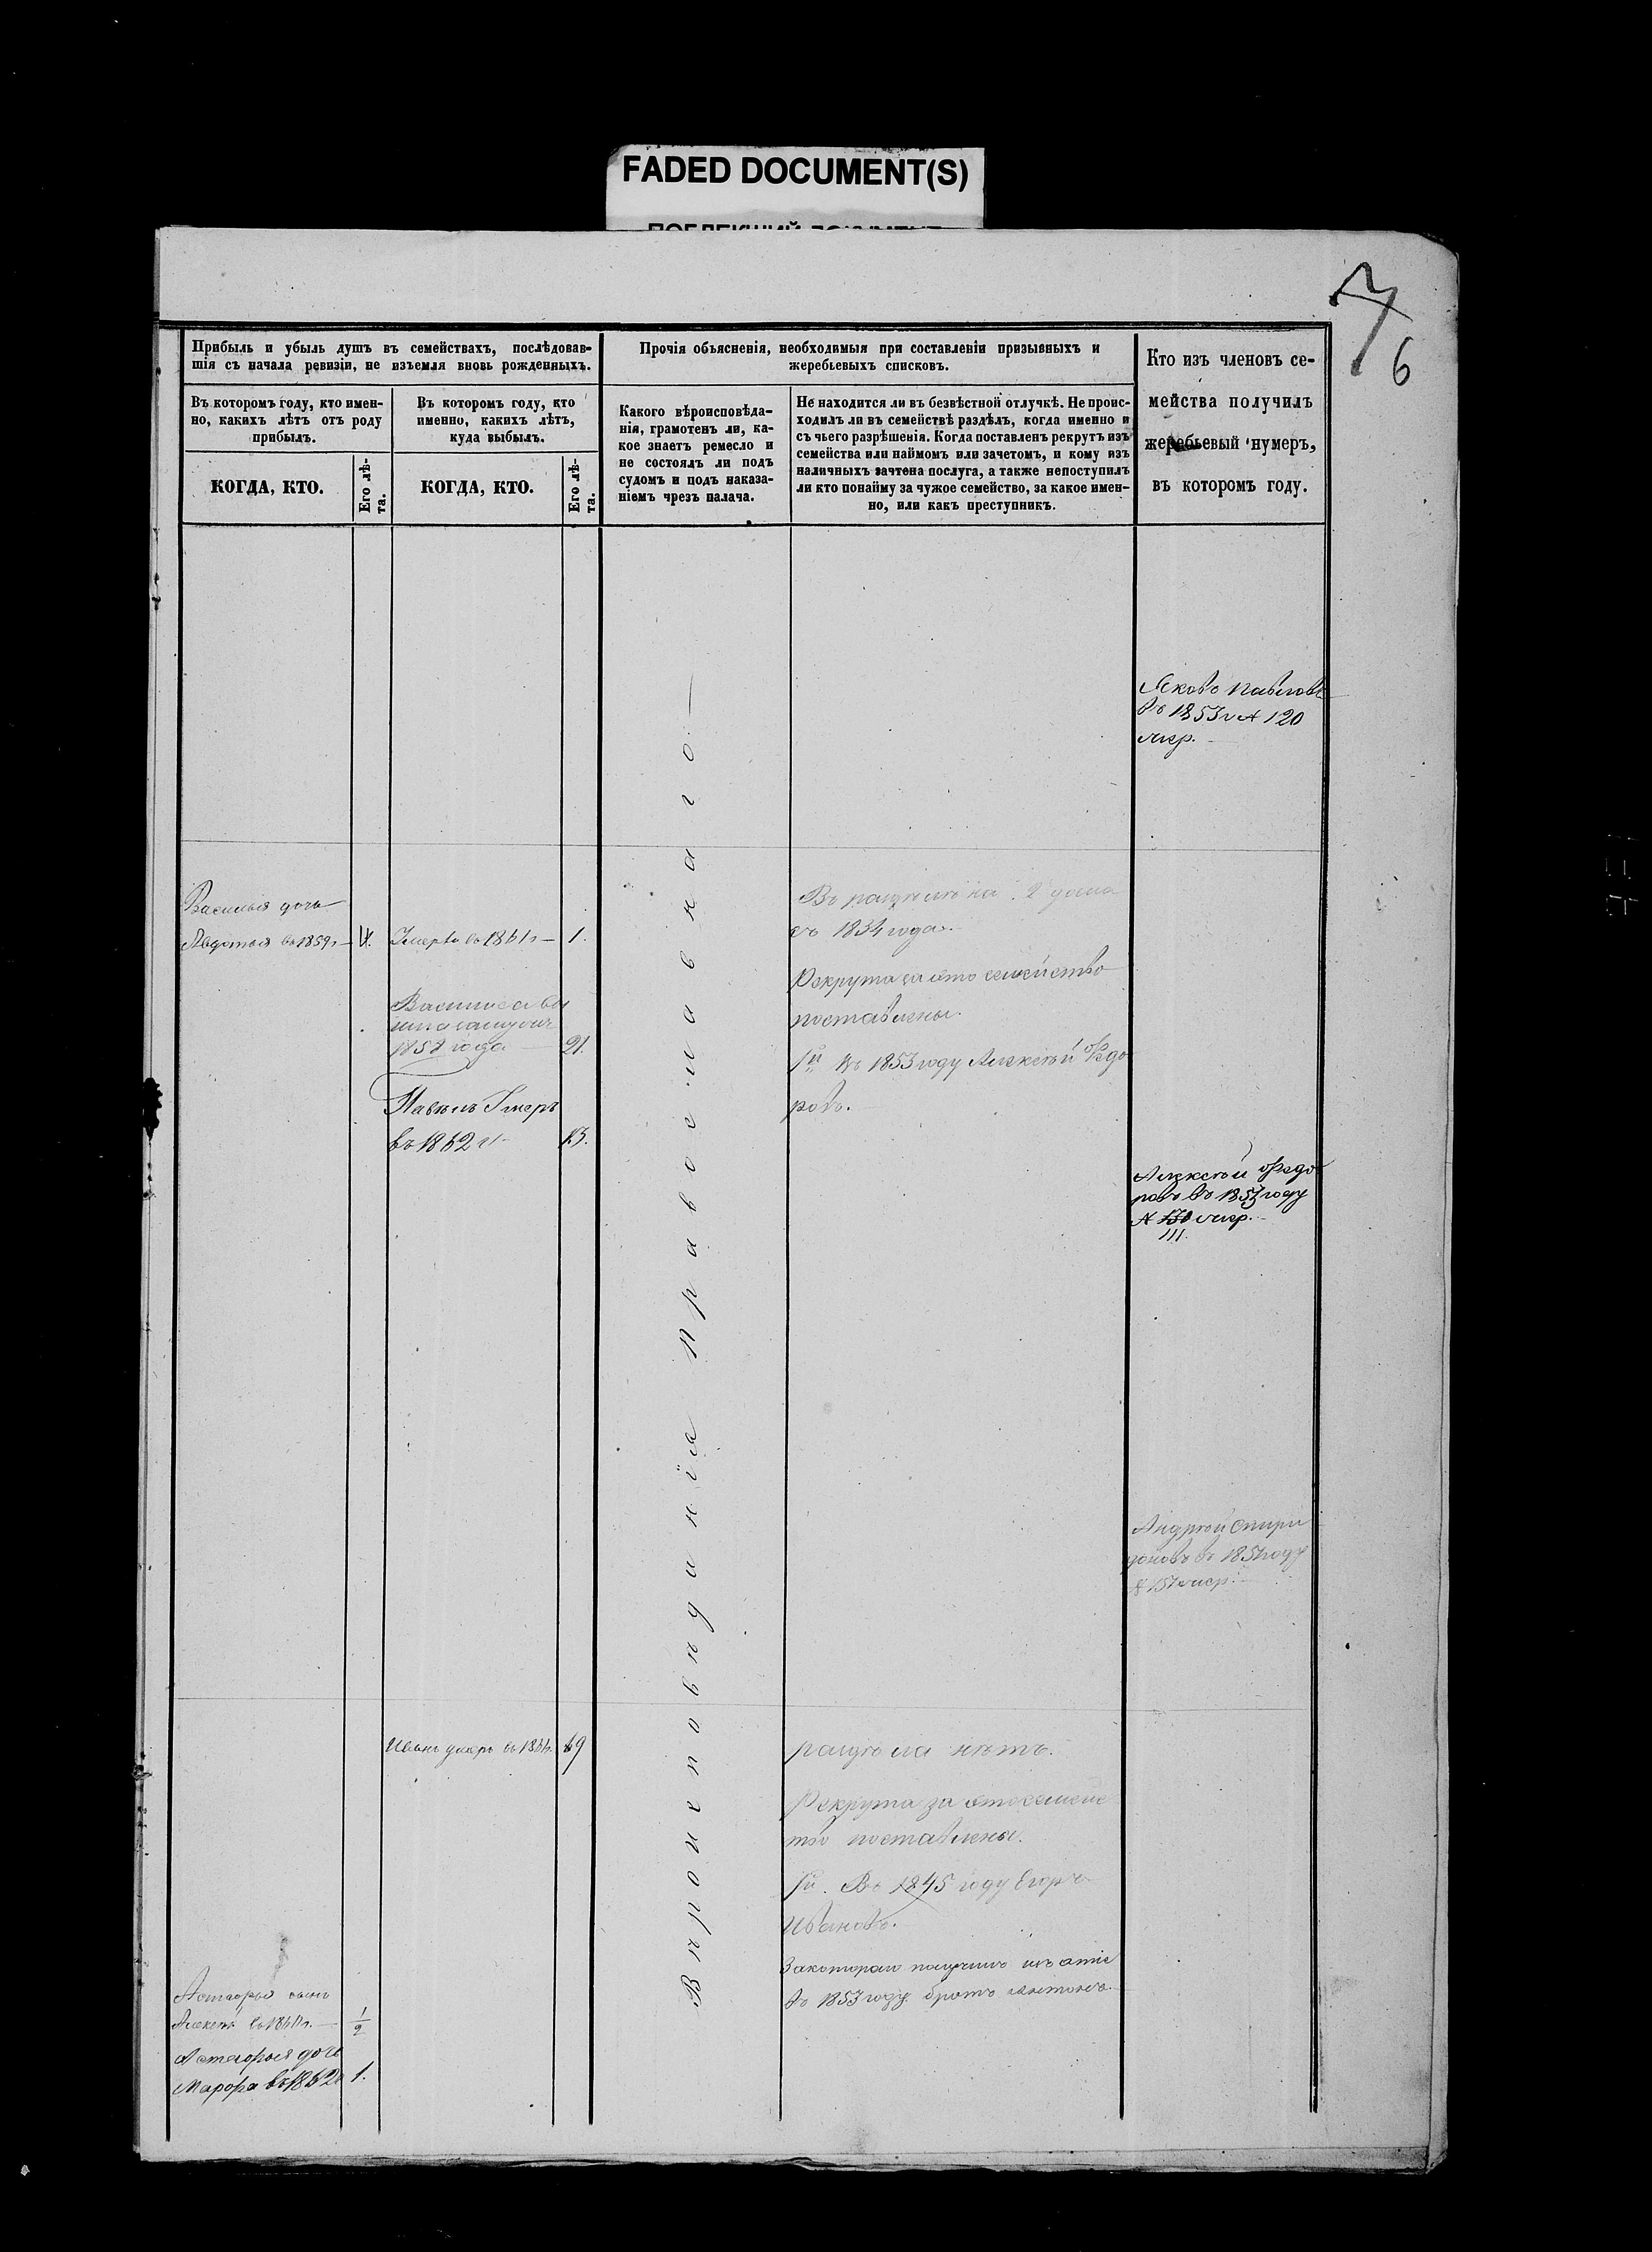 FADED DOCUMENT(S)
7
6
Прибыль и убыль душъ въ семействахъ, послѣдовав-
шія съ начала ревизіи, не изъемля вновь рожденныхъ.
Въ которомъ году, кто имен-
но, какихъ лѣтъ отъ роду
прибылъ.
КОГДА, КТО.
Его лѣ-
та.
Въ которомъ году, кто
именно, какихъ лѣтъ,
куда выбылъ.
КОГДА, КТО.
Его лѣ-
та.
Прочія объясненія, необходимыя при составленіи призывныхъ и
жеребьевыхъ списковъ.
Какого вѣроисповѣда-
нія, грамотенъ ли, ка-
кое знаетъ ремесло и
не состоялъ ли подъ
судомъ и подъ наказа-
ніемъ чрезъ палача.
Не находится ли въ безвѣстной отлучкѣ. Не проис-
ходилъ ли въ семействѣ раздѣлъ, когда именно и
съ чьего разрѣшенія. Когда поставленъ рекрутъ изъ
семейства или наймомъ или зачетомъ, и кому изъ
наличныхъ зачтена послуга, а также непоступилъ
ли кто понайму за чужое семейство, за какое имен-
но, или какъ преступникъ.
Кто изъ членовъ се-
мейства получилъ
жеребьевый нумеръ,
въ которомъ году.
Яковъ Павловъ
въ 1853 г № 120
жер.
Василья дочь
Авдотья въ 1859 г
Умерла въ 1861 г 1.
1858 года 21.
Павелъ Умеръ
въ 1862 г 13.
Вѣроисповѣданія Православнаго
Въ раздѣлѣ на 2 дома
съ 1834 года.
Рекрута за это семейство
поставлены.
1й въ 1853 году Алексѣй Федо
ровъ.
Алексѣй Федо
ровъ въ 1853 году
№ 130 жер.
111.
Андрей Спири
доновъ въ 185 году
жер.
Иванъ умеръ въ 69
раздѣла нѣтъ.
Рекрута за это семейс
тво поставлены.
1й. Въ 1845 году Егоръ
Ивановъ.
За котораго получилъ
въ 1853 году братъ Антонъ.
сынъ
Алексѣй 1/2
дочь
Марфа въ 1862 1.